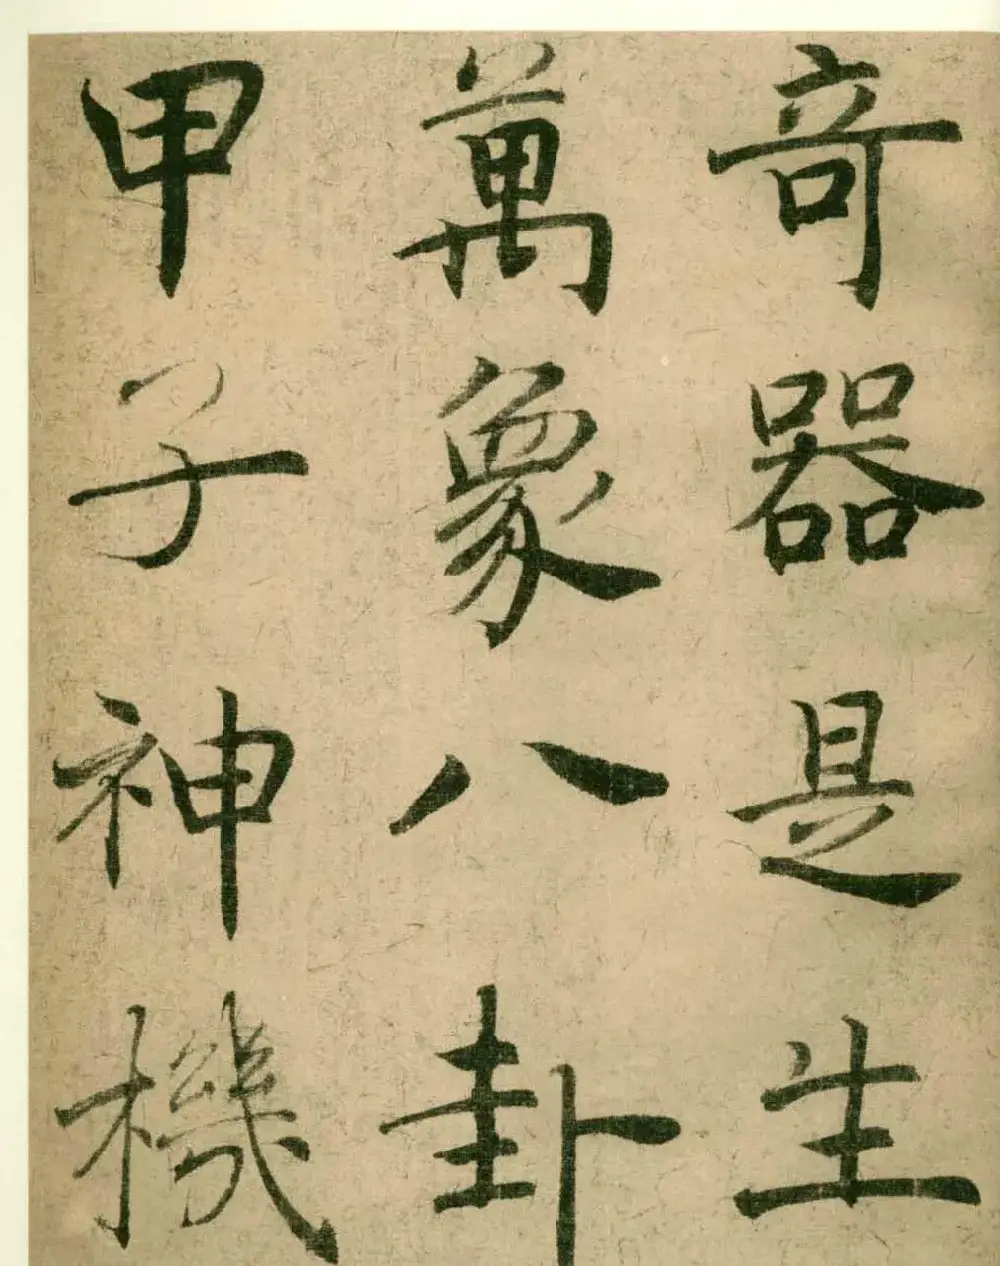 竒器是生
萬象八卦
甲子神機